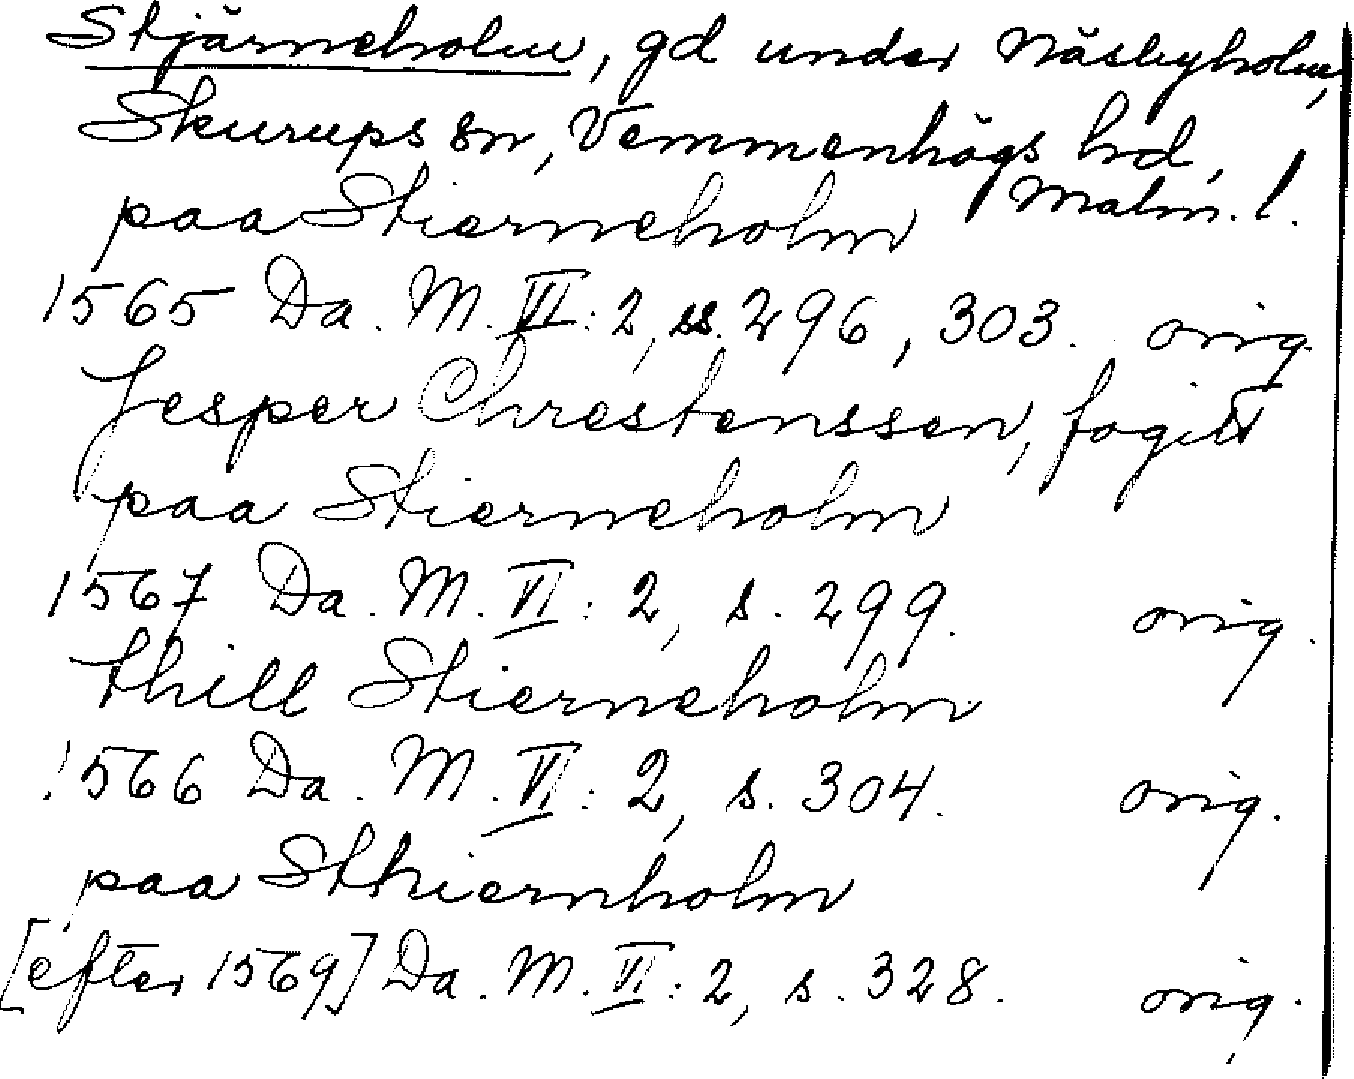 Stjärneholm, gd under Näsbyholm,
Skurups sn, Vemmenhögs hd,
Malm. l.
paa Stierneholm
1565 Da. M. VI: 2, ss. 296, 303. orig.
Jesper Chrestenssen, fogitt
paa Stierneholm
1567 Da. M. VI: 2, s. 299. orig.
thill Stierneholm
1566 Da. M. VI: 2, s. 304. orig.
paa Sthiernholm
[efter 1569] Da. M. VI: 2, s. 328. orig.